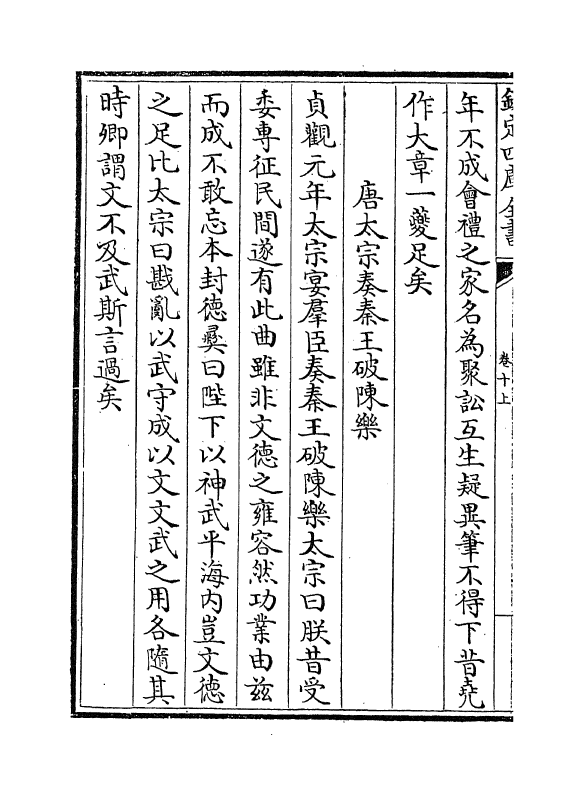 欽定四庫全書
卷十上
年不成會禮之家名為聚訟互生疑異筆不得下昔堯
作大章一夔足矣
唐太宗奏秦王破陳樂
貞觀元年太宗宴羣臣奏秦王破陳樂太宗曰朕昔受
委專征民間遂有此曲雖非文德之雍容然功業由兹
而成不敢忘本封德彛曰陛下以神武平海内豈文德
之足比太宗曰戡亂以武守成以文文武之用各隨其
時卿謂文不及武斯言過矣